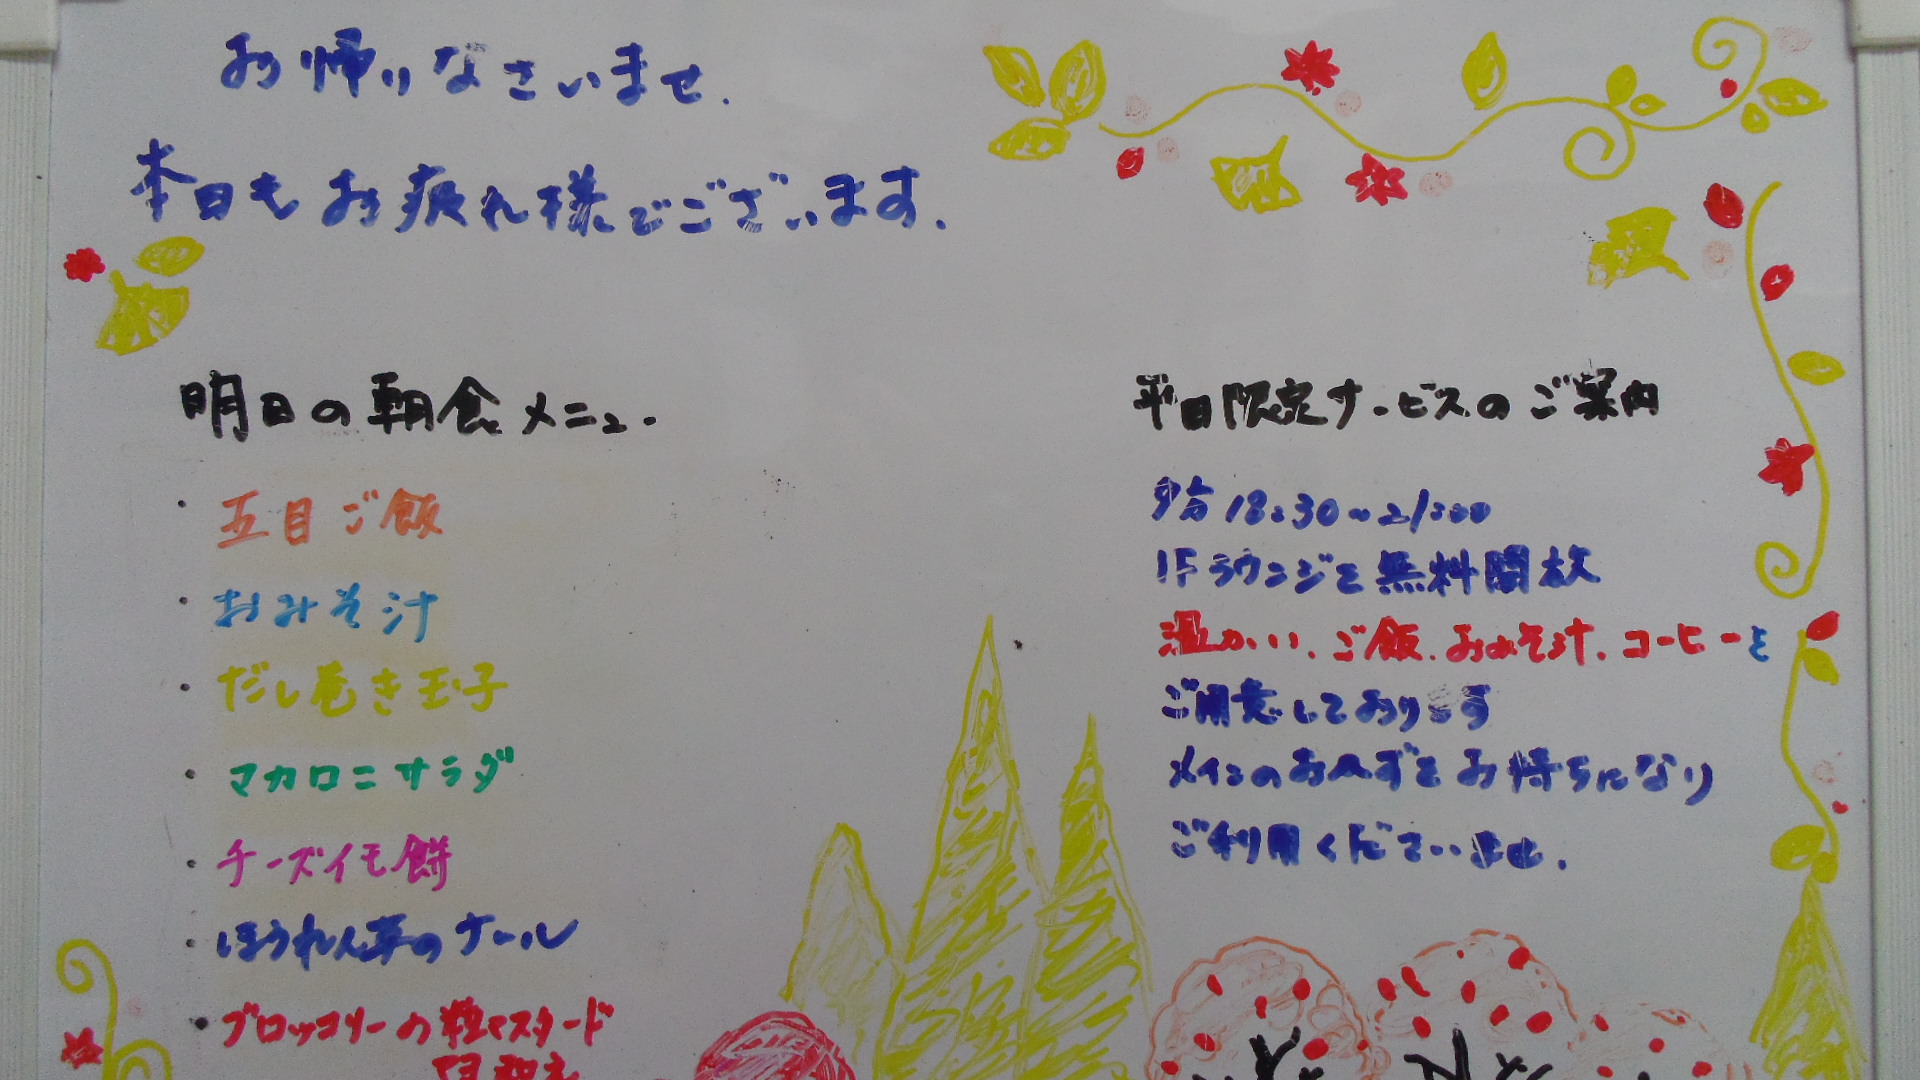 お帰りなさいませ.
本日もお疲れ様でございます.
明日の朝食メニュー
・五目ご飯
・おみそ汁
・だし巻き玉子
・マカロニサラダ
・チーズイモ餅
・ほうれん草のナムル
・ブロッコリーの粒マスタード
平日限定サービスのご案内
夕方18:30〜21:00
1Fラウンジを無料開放
温かい、ご飯、おみそ汁、コーヒーを
ご用意しております
メインのおかずをお持ちになり
ご利用くださいませ.